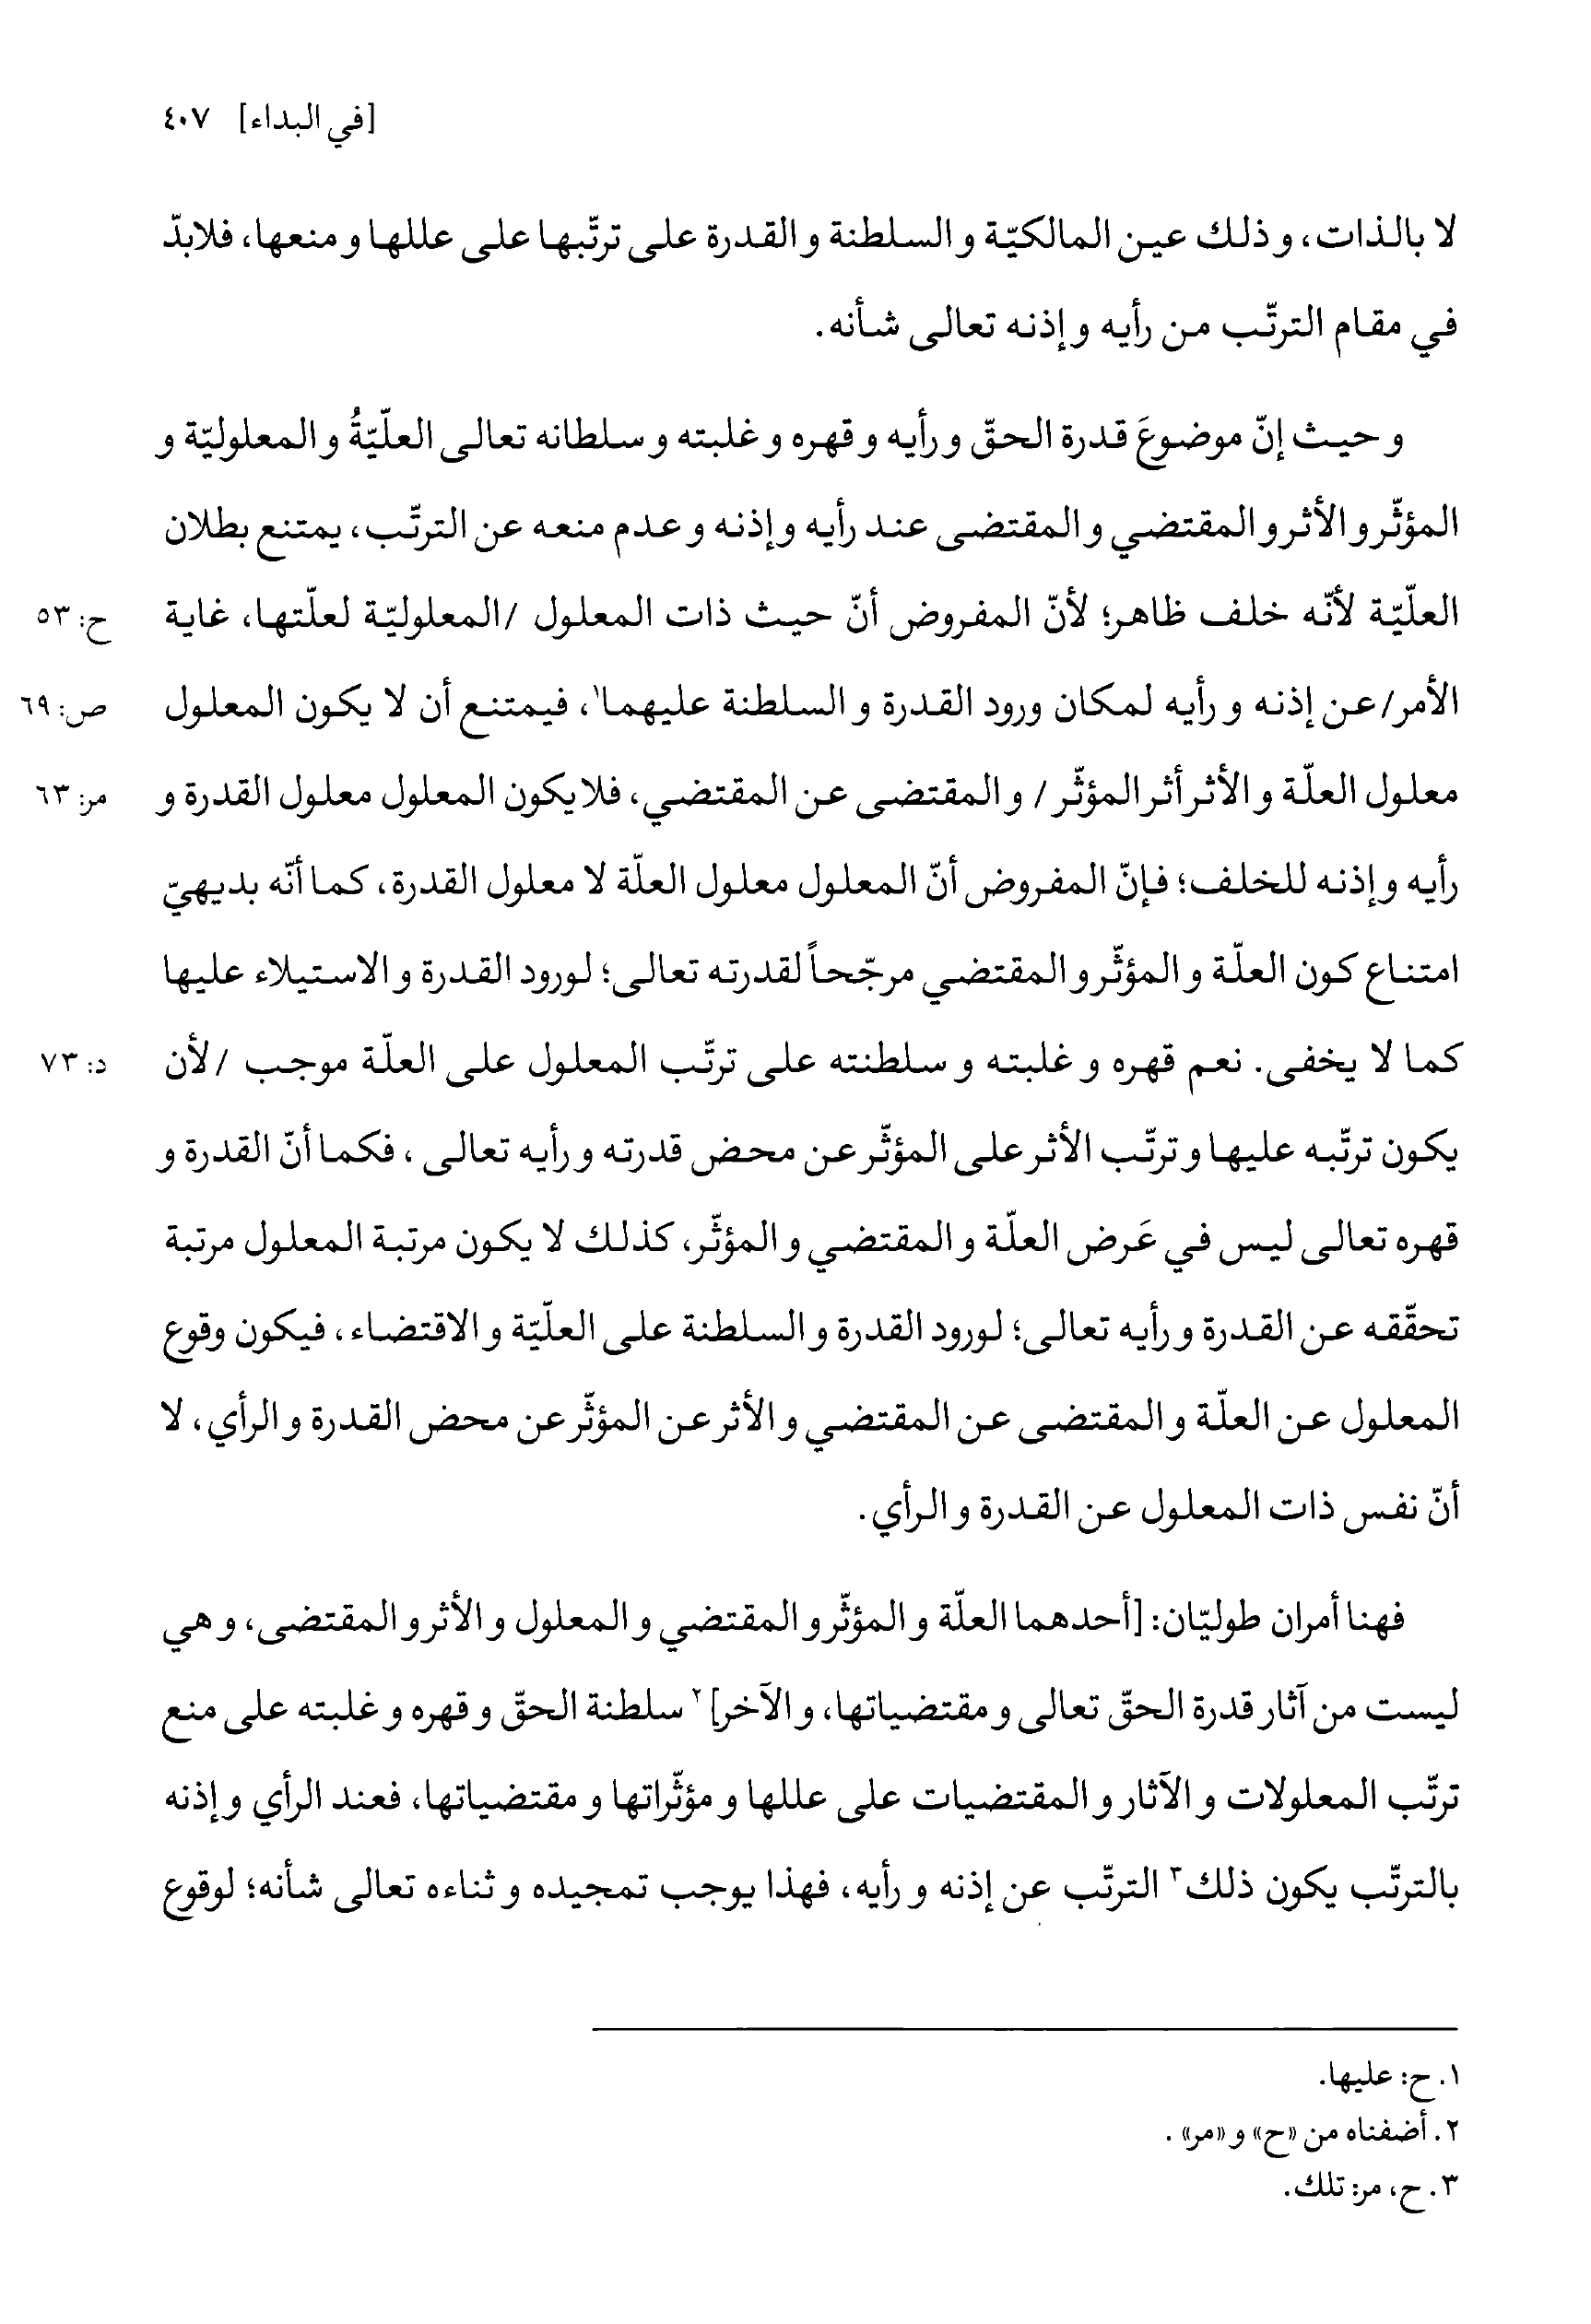 [في البداء] ٤٠٧
لا بالذات، و ذلك عين المالكيّة و السلطنة و القدرة على ترتّبها على عللها و منعها، فلابدّ
في مقام الترتّب من رأيه و إذنه تعالى شأنه.
و حيث إنّ موضوعَ قدرة الحقّ و رأيه و قهره و غلبته و سلطانه تعالى العلّيّةُ و المعلوليّة و
المؤثّر و الأثر و المقتضي و المقتضى عند رأيه و إذنه و عدم منعه عن الترتّب، يمتنع بطلان
العلّيّة لأنّه خلف ظاهر؛ لأنّ المفروض أنّ حيث ذات المعلول /المعلوليّة لعلّتها، غاية ح: ٥٣
الأمر/عن إذنه و رأيه لمكان ورود القدرة و السلطنة عليهما١، فيمتنع أن لا يكون المعلول ص: ٦٩
معلول العلّة و الأثر أثر المؤثّر / و المقتضى عن المقتضي، فلا يكون المعلول معلول القدرة و مر: ٦٣
رأيه و إذنه للخلف؛ فإنّ المفروض أنّ المعلول معلول العلّة لا معلول القدرة، كما أنّه بديهيّ
امتناع كون العلّة و المؤثّر و المقتضي مرجّحاً لقدرته تعالى؛ لورود القدرة و الاستيلاء عليها
كما لا يخفى. نعم قهره و غلبته و سلطنته على ترتّب المعلول على العلّة موجب /لأن د: ٧٣
يكون ترتّبه عليها و ترتّب الأثر على المؤثّر عن محض قدرته و رأيه تعالى ، فكما أنّ القدرة و
قهره تعالى ليس في عَرض العلّة و المقتضي و المؤثّر، كذلك لا يكون مرتبة المعلول مرتبة
تحقّقه عن القدرة و رأيه تعالى؛ لورود القدرة و السلطنة على العلّيّة و الاقتضاء، فيكون وقوع
المعلول عن العلّة و المقتضى عن المقتضي و الأثر عن المؤثّر عن محض القدرة و الرأي، لا
أنّ نفس ذات المعلول عن القدرة و الرأي.
فهنا أمران طوليّان: [أحدهما العلّة و المؤثّر و المقتضي و المعلول و الأثر و المقتضى، و هي
ليست من آثار قدرة الحقّ تعالى و مقتضياتها، و الآخر]٢ سلطنة الحقّ و قهره و غلبته على منع
ترتّب المعلولات و الآثار و المقتضيات على عللها و مؤثّراتها و مقتضياتها، فعند الرأي و إذنه
بالترتّب يكون ذلك٣ الترتّب عن إذنه و رأيه، فهذا يوجب تمجيده و ثناءه تعالى شأنه؛ لوقوع
١. ح: عليها.
٢. أضفناه من «ح» و «مر» .
٣. ح، مر: تلك.